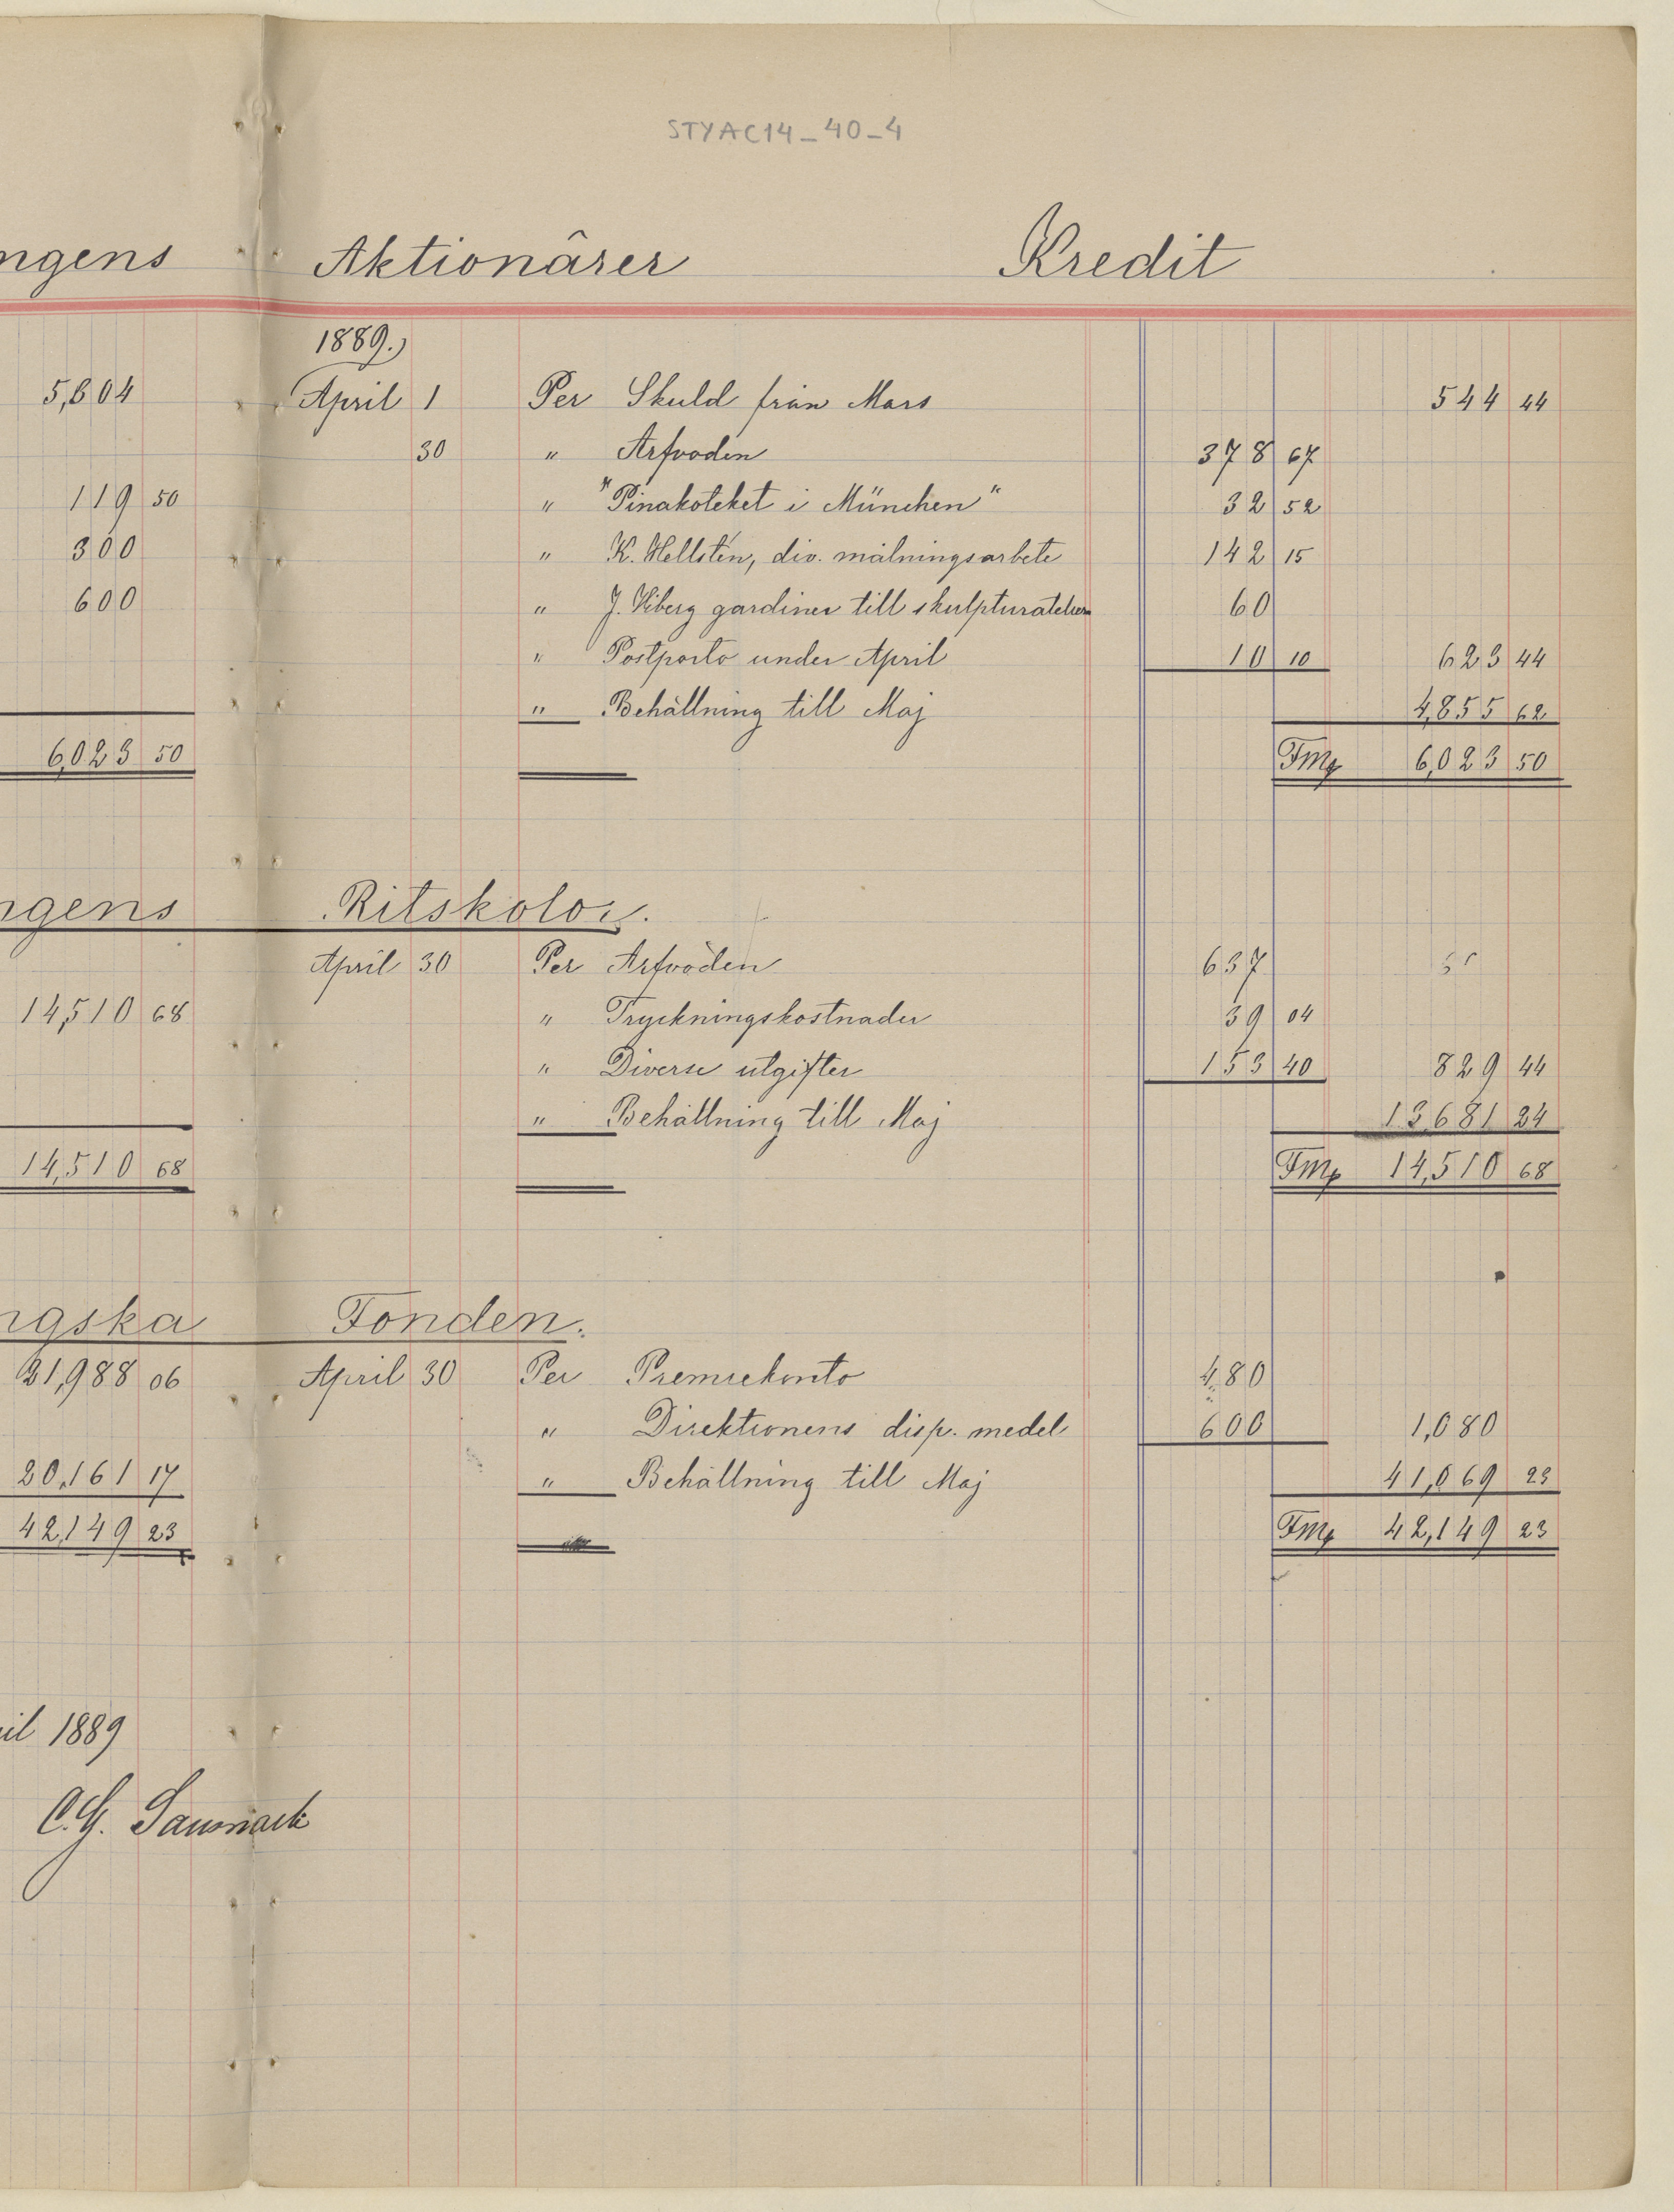 STYAC14_40_4
ngens Aktionärer Kredit
1889.
5,604 April 1 Per Skuld från Mars 544 44
30 " Arfvoden 378 67
119 50 " "Pinakoteket i München" 32 52
300 " K. Hellstén, div. målningsarbete 142 15
600 " J. Viberg gardiner till skulpturatelier 60
" Postporto under April 10 10 623 44
" Behållning till Maj 4,855 62
6,023 50 Fmg 6,023 50
ngens Ritskolor.
April 30 Per Arfvoden 637
14,510 68 " Tryckningskostnader 39 04
" Diverse utgifter 153 40 829 44
" Behållning till Maj 13,681 24
14,510 68 Fmg 14,510 68
ngska Fonden.
21,988 06 April 30 Per Premiekonto 480
" Direktionens disp. medel 600 1,080
20,161 17 " Behållning till Maj 41,069 23
42,149 23 Fmg 42,149 23
il 1889
C.G.